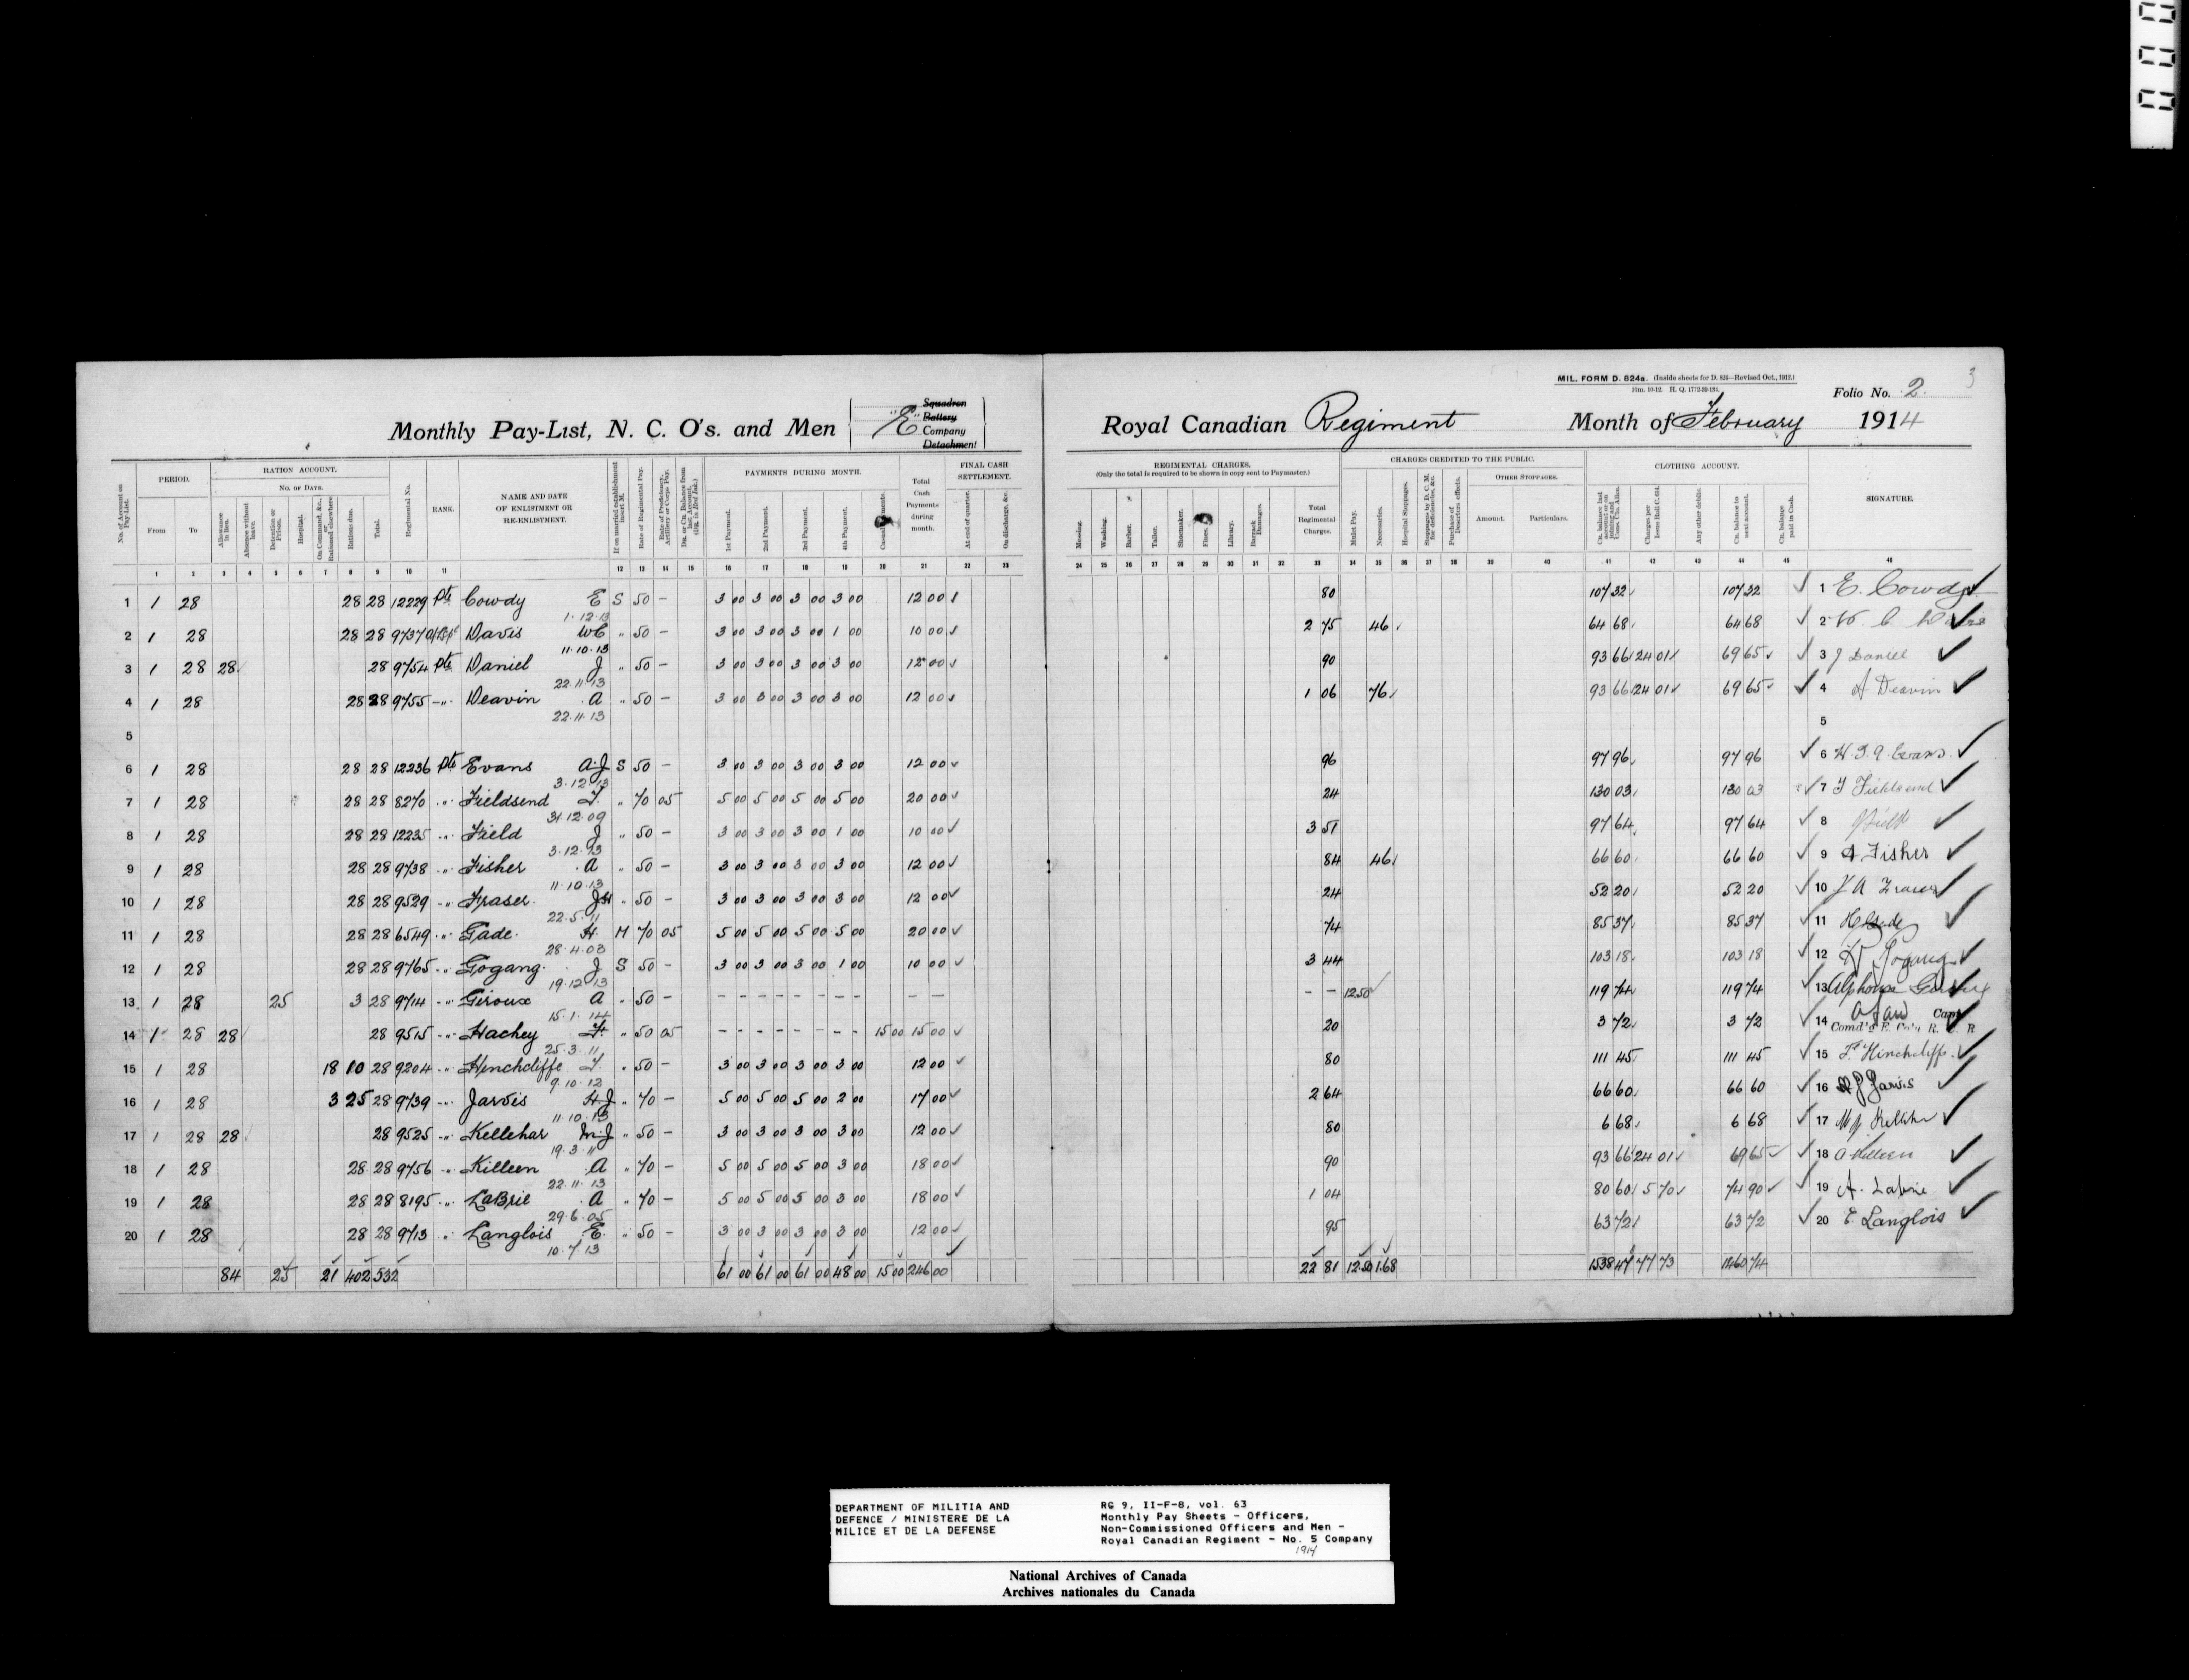 MIL. FORM D. 824a. (Inside sheets for D. 824—Revised Oct., 1912.)
10m. 10-12. H. Q. 1772-39-121.
Folio No. 2. 3
Monthly Pay-List, N. C. O's. and Men "E" Squadron Battery Company Detachment Royal Canadian Regiment Month of February 1914
No. of Account on Pay-List. PERIOD. From To
RATION ACCOUNT. No. of Days.
Allowance in lieu. Absence without leave. Detention or Prison. Hospital. On Command, &c., or Rationed elsewhere Rations due. Total.
Regimental No. RANK. NAME AND DATE OF ENLISTMENT OR RE-ENLISTMENT.
If on married establishment insert M. Rate of Regimental Pay. Rate of Proficiency, Artillery or Corps Pay. Dr. or Cr. Balance from last Account. (Dr. in Red Ink.)
PAYMENTS DURING MONTH. 1st Payment. 2nd Payment. 3rd Payment. 4th Payment. Total Cash Payments during month.
FINAL CASH SETTLEMENT. At end of quarter. On discharge, &c.
REGIMENTAL CHARGES. (Only the total is required to be shown in copy sent to Paymaster.)
Messing. Washing. Barber. Tailor. Shoemaker. Fines. Library. Barrack Damages. Total Regimental Charges.
CHARGES CREDITED TO THE PUBLIC. Mulct Pay. Necessaries. Hospital Stoppages. Stoppages by D. C. M. for deficiencies, &c. Purchase of Deserters effects. OTHER STOPPAGES. Amount. Particulars.
CLOTHING ACCOUNT. Charges per Issue Roll C. 614. Any other debits. Cr. balance to next account. Cr. balance paid in Cash.
SIGNATURE.
1 2 3 4 5 6 7 8 9 10 11 12 13 14 15 16 17 18 19 20 21 22 23 24 25 26 27 28 29 30 31 32 33 34 35 36 37 38 39 40 41 42 43 44 45 46
1 1 28 28 28 12229 Pte Cowdy E S 50 - 3 00 3 00 3 00 3 00 12 00 80 107 32 107 32 1 E. Cowdy
1.12.13
2 1 28 28 28 9737 Davis WC " 50 - 3 00 3 00 3 00 1 00 10 00 2 75 46 64 68 64 68 2
11.10.13
3 1 28 28 28 9754 Pte Daniel J " 50 - 3 00 3 00 3 00 3 00 12 00 90 93 66 24 01 69 65 3 J Daniel
22.11.13
4 1 28 28 28 9755 -"- Deavin A " 50 - 3 00 3 00 3 00 3 00 12 00 1 06 76 93 66 24 01 69 65 4 A Deavin
22.11.13
5 5
6 1 28 28 28 12236 Pte Evans A.J S 50 - 3 00 3 00 3 00 3 00 12 00 96 97 96 97 96 6
3.12.13
7 1 28 28 28 8270 -"- Fieldsend T. " 70 05 5 00 5 00 5 00 5 00 20 00 24 130 03 130 03 7 T Fieldsend
31.12.09
8 1 28 28 28 12235 -"- Field J " 50 - 3 00 3 00 3 00 1 00 10 00 3 51 97 64 97 64 8
3.12.13
9 1 28 28 28 9738 -"- Fisher A " 50 - 3 00 3 00 3 00 3 00 12 00 84 46 66 60 66 60 9 A Fisher
11.10.13
10 1 28 28 28 9529 -"- Fraser. " 50 - 3 00 3 00 3 00 3 00 12 00 24 52 20 52 20 10
22.5.11
11 1 28 28 28 6549 -"- Gade. H. M 70 05 5 00 5 00 5 00 5 00 20 00 74 85 37 85 37 11
28.4.03
12 1 28 28 28 9765 -"- Gogang. J S 50 - 3 00 3 00 3 00 1 00 10 00 3 44 103 18 103 18 12
19.12.13
13 1 28 25 3 28 9714 -"- Giroux A " 50 - - - - - - - - - - - - - 12 50 119 74 119 74 13 Alphonse
15.1.14
14 1 28 28 28 9515 -"- Hachey F. " 50 05 - - - - - - - - 15 00 15 00 20 3 72 3 72 14 Capt
Comd'g E. Co'y, R. C. R
25.3.11
15 1 28 18 10 28 9204 -"- Hinchcliffe T. " 50 - 3 00 3 00 3 00 3 00 12 00 80 111 45 111 45 15 Hinchcliffe
9.10.12
16 1 28 3 25 28 9739 -"- Jarvis H.J " 70 - 5 00 5 00 5 00 2 00 17 00 2 64 66 60 66 60 16 Jarvis
11.10.13
17 1 28 28 28 9525 -"- Kellehar M.J " 50 - 3 00 3 00 3 00 3 00 12 00 80 6 68 6 68 17
19.3.11
18 1 28 28 28 9756 -"- Killeen A " 70 - 5 00 5 00 5 00 3 00 18 00 90 93 66 24 01 69 65 18 A Killeen
22.11.13
19 1 28 28 28 8195 -"- LaBrie A " 70 - 5 00 5 00 5 00 3 00 18 00 1 04 80 60 5 70 74 90 19 A. Labrie
29.6.05
20 1 28 28 28 9713 " Langlois E. " 50 - 3 00 3 00 3 00 3 00 12 00 95 63 72 63 72 20 E Langlois
10.7.13
84 25 21 402 532 61 00 61 00 61 00 48 00 15 00 246 00 22 81 12.50 1.68 1538 47 77 73 1460 74
DEPARTMENT OF MILITIA AND
DEFENCE / MINISTERE DE LA
MILICE ET DE LA DEFENSE
RG 9, II-F-8, vol. 63
Monthly Pay Sheets - Officers,
Non-Commissioned Officers and Men -
Royal Canadian Regiment - No. 5 Company
1914
National Archives of Canada
Archives nationales du Canada